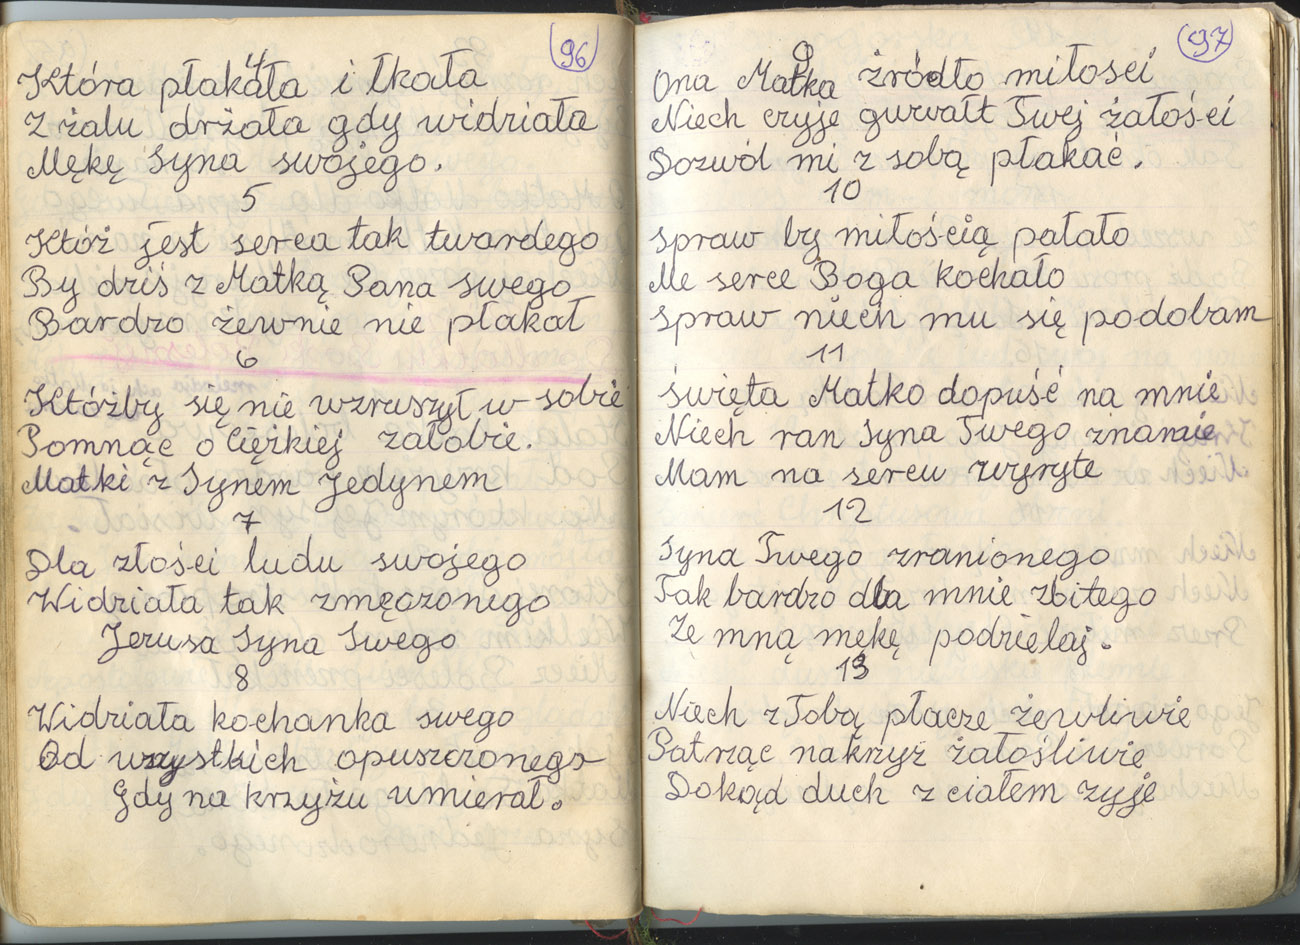 96
4
Która płakała i łkała
Z żalu drżała gdy widziała
Mękę Syna swojego.
5
Któż jest serca tak twardego
By dziś z Matką Pana swego
Bardzo żewnie nie płakał
6
Któżby się nie wzruszył w sobie
Pomnąc o Ciężkiej załobie.
Matki z Synem Jedynem
7
Dla złości ludu swojego
Widziała tak zmęczonego
Jezusa Syna Swego
8
Widziała kochanka swego
Od wszystkich opuszczonego
Gdy na krzyżu umierał.
97
9
Ona Matka żródło miłości
Niech czyję gwałt Twej żałości
Dozwól mi z sobą płakać.
10
Spraw by miłością pałało
Me serce Boga kochało
Spraw niech mu się podobam
11
Święta Matko dopuść na mnie
Niech ran Syna Twego znamie
Mam na sercu wyryte
12
Syna Twego zranionego
Tak bardzo dla mnie zbitego
Ze mną mękę podzielaj.
13
Niech z Tobą płaczę żewliwie
Patrząc na krzyż żałośliwie
Dokąd duch z ciałem zyje